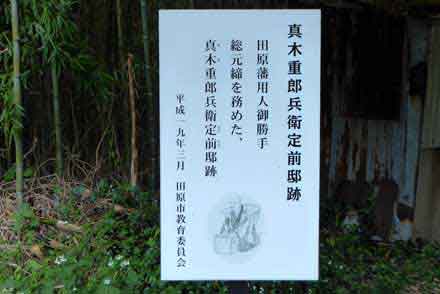 真木重郎兵衛定前邸跡
田原藩用人御勝手
総元締を務めた、
真木重郎兵衛定前邸跡
平成一九年三月 田原市教育委員会